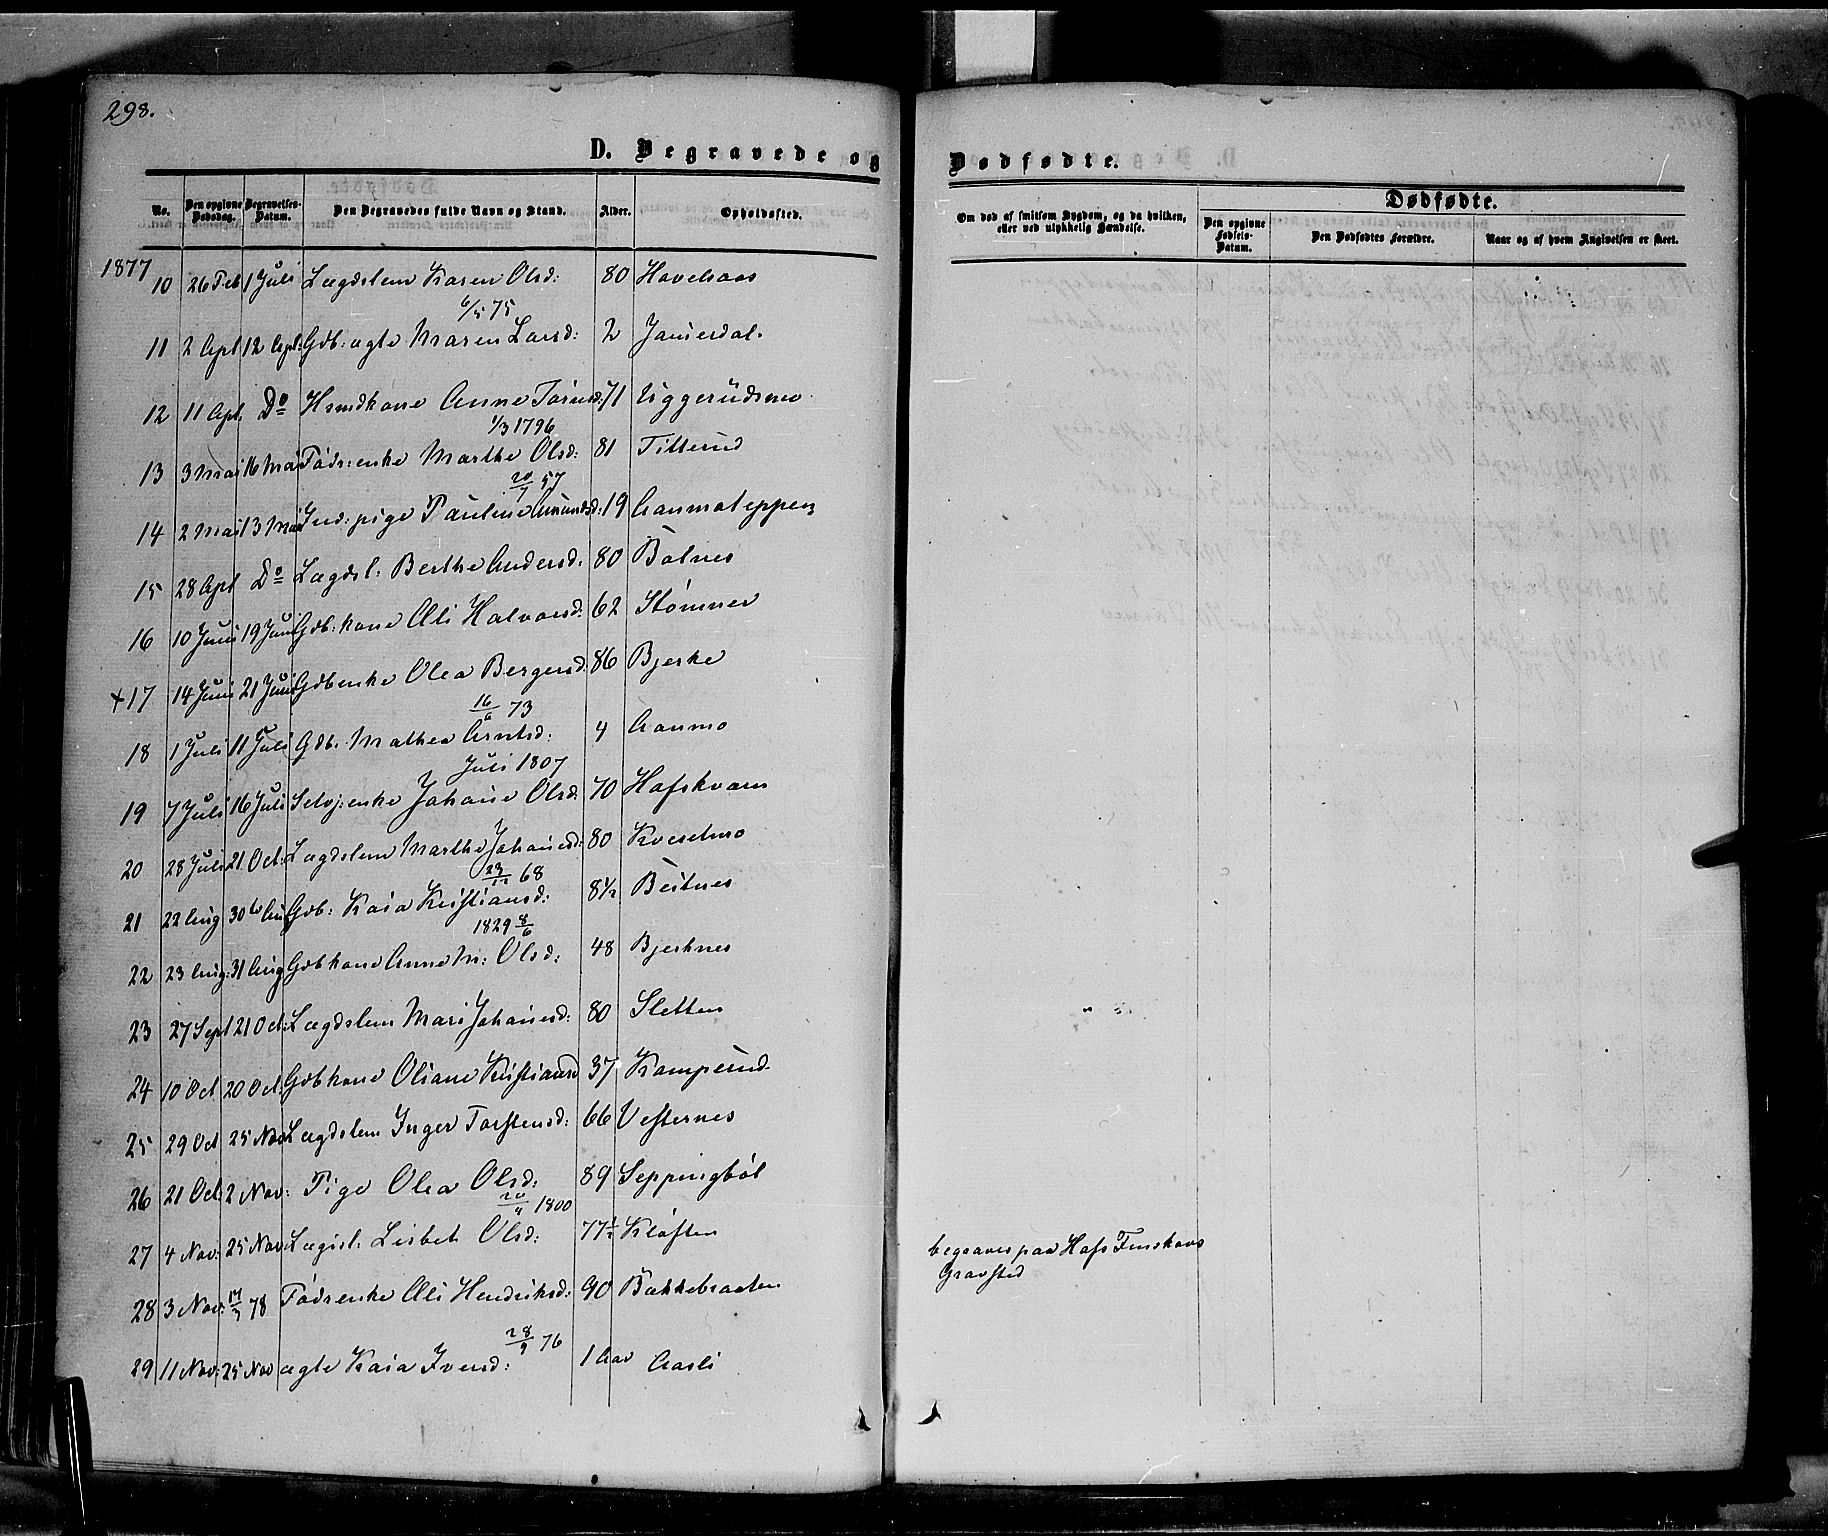 298.
D. Begravede og
No. Den opgivne Dødsdag. Begravelses-Datum. Den Begravedes fulde Navn og Stand. Alder. Opholdssted.
1877
10 26 Feb 1 Juli Lægdslem Karen Olsd: 80 Havelsaas
6/5 75
11 2 Apl 12 Apl: Gdb: ægte Maren Larsd: 2
12 11 Apl Do Hmdkone Anne 71 Uggerudsmo
1/3 1796
13 3 Mai 16 Mai Fødr: enke Marthe Olsd: 81 Titterud
20/7 57
14 2 Mai 13 Mai Ind: pige Pauline Amundsd: 19 Aanmoteppen
15 28 Apl Do Lægdsl: Berthe Andersd. 80 Botnes
16 10 Juni 19 Juni Gdb: kone Oli Halvorsd: 62 Stømner
+17 14 Juni 21 Juni Gdbenke Olea Bergersd. 86 Bjerke
16/6 73
18 1 Juli 11 Juli Gdb. Mathea Arntsd: 4 Aanmo
Juli 1807
19 7 Juli 16 Juli Selvj: enke Johane Olsd: 70 Hafskvarn
20 28 Juli 21 Oct: Lægdslem Marthe Johanesd: 80 Kveselmo
23/12 68
21 22 Aug 30te Aug Gdb: Kaia Kristiansd: 8½ Beitnes
1829 8/6
22 23 Aug: 31 Aug Gdbkone Anne M: Olsd: 48 Bjerknes
23 27 Sept 21 Oct: Lægdslem Mari Johanesd: 80 Sletten
24 10 Oct 20 Oct: Gdbkone Oliane Kristiansd 37 Kamperud
25 29 Oct 25 Nov Lægdslem Inger Torstensd: 66 Vesternes
26 21 Oct: 2 Nov: Pige Olea Olsd: 89 Seppingbøl
20/4 1800
27 4 Nov: 25 Nov Lægdsl: Lisbet Olsd: 77½ Kløften
28 3 Nov: 17/3 78 Fødrenke Oli Hendriksd: 90 Bakkebraaten
28/9 76
29 11 Nov: 25 Nov ægte Kaia Iversd: 1 Aar Aasli
Dødfødte.
Om død af smitsom Sygdom, og da hvilken, eller ved ulykkelig Hændelse.
Dødfødte.
Den opgivne Fødsels-Datum. Den Dødfødtes Forældre. Naar og af hvem Angivelsen er skeet.
begraves paa Hafs Finskovs
Gravsted